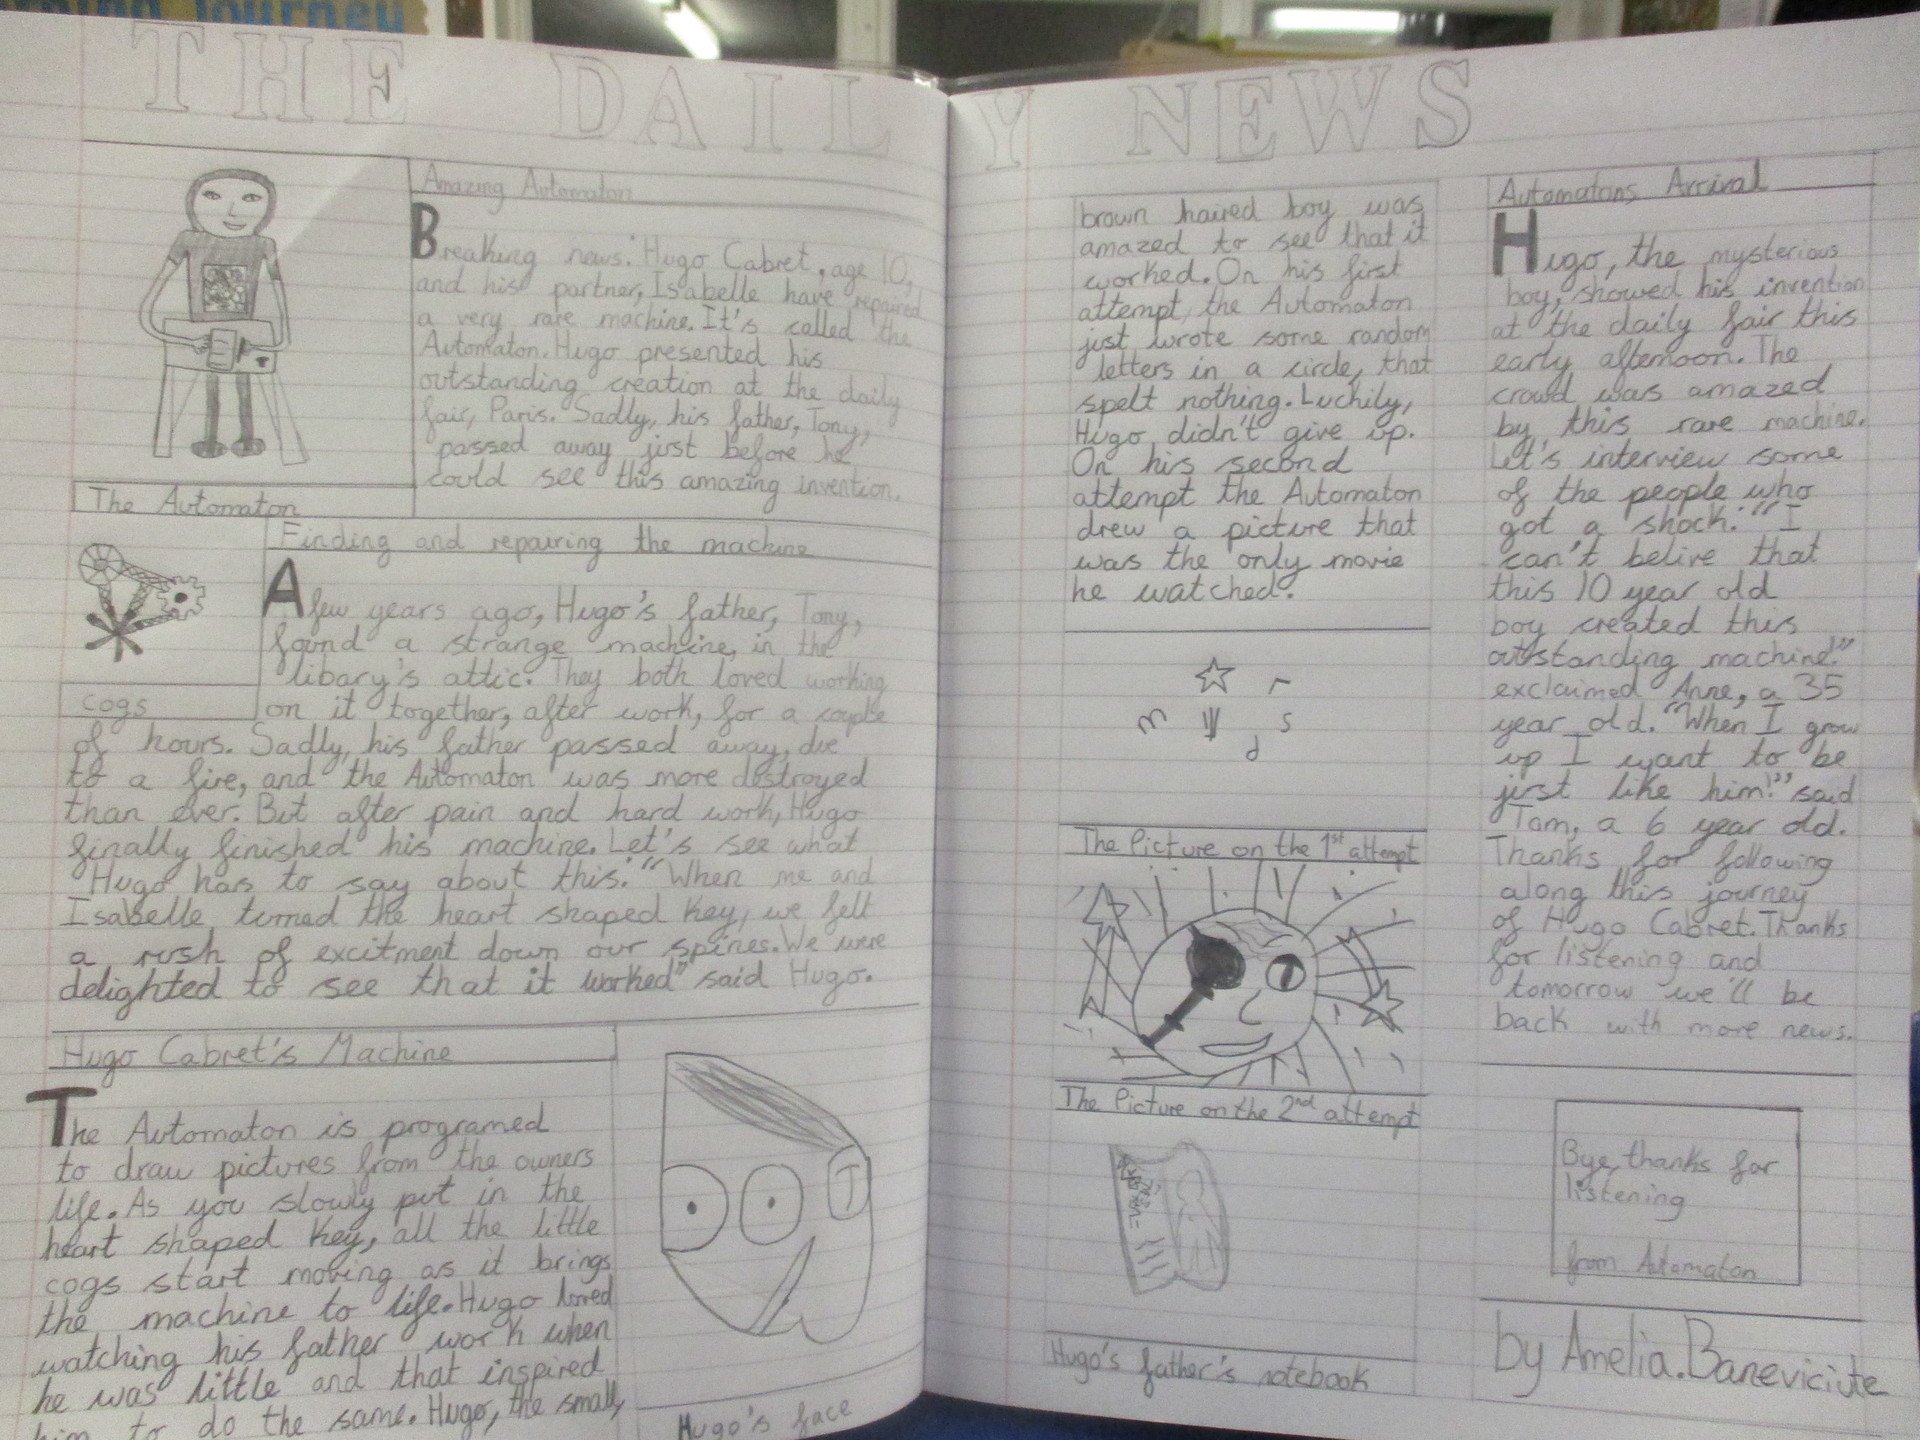 Journey
THE DAILY NEWS
The Automaton
Amazing Automaton
Breaking news: Hugo Cabret, age 10,
and his partner, Isabelle have repaired
a very rare machine. It's called the
Automaton. Hugo presented his
outstanding creation at the daily
fair, Paris. Sadly, his father, Tony,
passed away just before he
could see this amazing invention.
cogs
Finding and repairing the machine
A few years ago, Hugo's father, Tony,
found a strange machine, in the
libary's attic. They both loved working
on it together, after work, for a couple
of hours. Sadly, his father passed away, due
to a fire, and the Automaton was more destroyed
than ever. But after pain and hard work, Hugo
finally finished his machine. Let's see what
Hugo has to say about this: "When me and
Isabelle turned the heart shaped key, we felt
a rush of excitment down our spines. We were
delighted to see that it worked" said Hugo.
Hugo Cabret's Machine
The Automaton is programed
to draw pictures from the owners
life. As you slowly put in the
heart shaped key, all the little
cogs start moving as it brings
the machine to life. Hugo loved
watching his father work when
he was little and that inspired
him to do the same. Hugo, the small,
Hugo's face
brown haired boy was
amazed to see that it
worked. On his first
attempt, the Automaton
just wrote some random
letters in a circle, that
spelt nothing. Luckily,
Hugo didn't give up.
On his second
attempt the Automaton
drew a picture that
was the only movie
he watched.
m s d
The Picture on the 1st attempt
The Picture on the 2nd attempt
Hugo's father's notebook
Automatons Arrival
Hugo, the mysterious
boy, showed his invention
at the daily fair this
early afternoon. The
crowd was amazed
by this rare machine.
Let's interview some
of the people who
got a shock: "I
can't belive that
this 10 year old
boy created this
outstanding machine!"
exclaimed Anne, a 35
year old. "When I grow
up I want to be
just like him!" said
Tom, a 6 year old.
Thanks for following
along this journey
of Hugo Cabret. Thanks
for listening and
tomorrow we'll be
back with more news.
Bye, thanks for
listening
from Automaton
by Amelia.Baneviciute